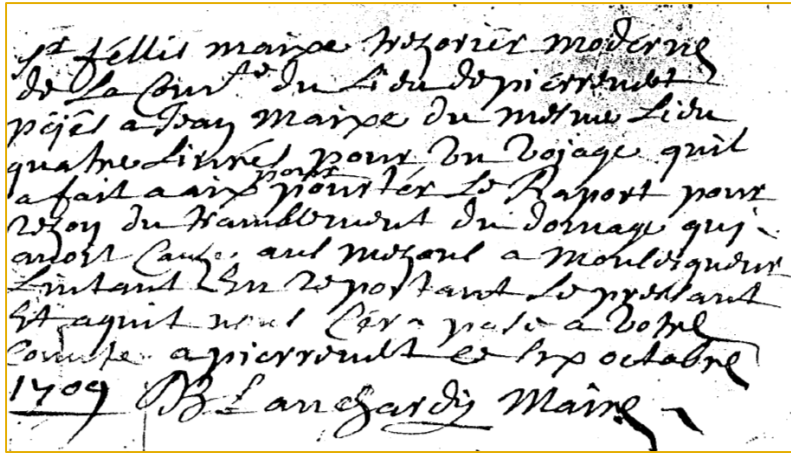 Sr féllis maixe trezoriér moderne
de La Com.te du Lieu de pierreuert
péjés a Jean Maixe du mesme Lieu
quatre Liures pour un Vojage quil
a fait a aix pour pourtér Le Raport pour
rezon du tramblement du domage qui
auoit Cause aus mezons a Monsegneur
Lintant En reportant Le pressant
Et aquit nous Céra passé a Votre
Comte a pierreuert ce six octobre
1709 Blanchardy Maire